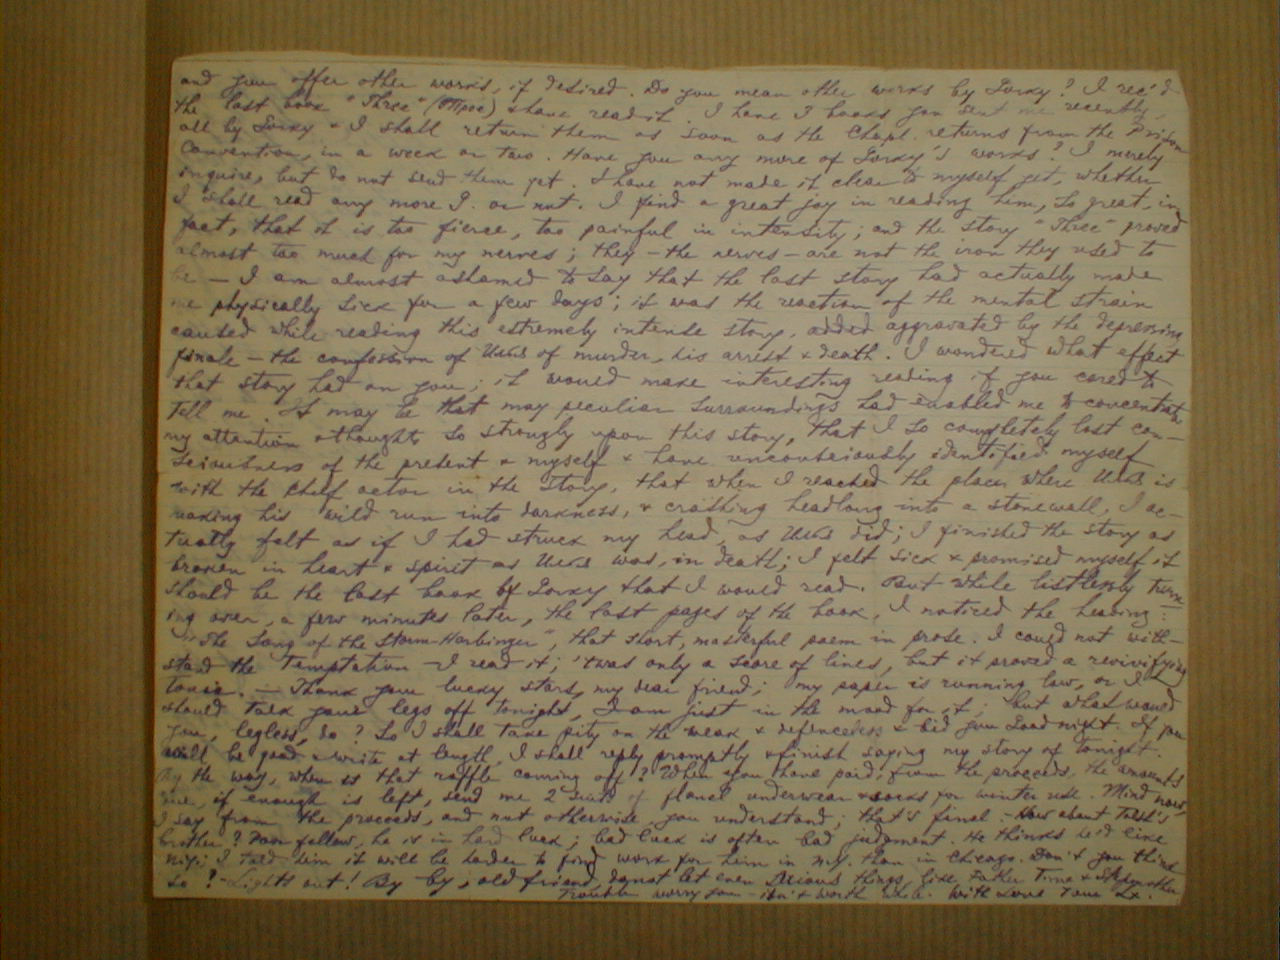 and you offer other works, if desired. Do you mean other works by Gorky? I rec'd
the last book "Three" (Трое) & have read it. I have 3 books you sent me recently,
all by Gorky & I shall return them as soon as the Chapl. returns from the Prison
Convention, in a week or two. Have you any more of Gorky's works? I merely
inquire, but do not send them yet. I have not made it clear to myself yet, whether
I shall read any more G. or not. I find a great joy in reading him, so great, in
fact, that it is too fierce, too painful in intensity; and the story "Three" proved
almost too much for my nerves; they – the nerves – are not the iron they used to
be – I am almost ashamed to say that the last story had actually made
me physically sick for a few days; it was the reaction of the mental strain
caused while reading this extremely intense story, added aggravated by the depressing
finale – the confession of of murder, his arrest & death. I wondered what effect
that story had on you; it would make interesting reading if you cared to
tell me. It may be that my peculiar surroundings had enabled me to concentrate
my attention & thoughts so strongly upon this story, that I so completely lost con-
sciousness of the present & myself & have unconsciously identified myself
with the chief actor in the story, that when I reached the place where is
making his wild run into darkness, & crashing headlong into a stonewall, I ac-
tually felt as if I had struck my head, as did; I finished the story as
broken in heart & spirit as was, in death; I felt sick & promised myself it
should be the last book by Gorky that I would read. But while listlessly turn-
ing over, a few minutes later, the last pages of the book, I noticed the heading:
"The Song of the Storm-Harbinger", that short, masterful poem in prose. I could not with-
stand the temptation – I read it; 'twas only a score of lines, but it proved a revivifying
tonic. – Thank your lucky stars, my dear friend; my paper is running low, or I
should talk your legs off tonight, I am just in the mood for it; but what would
you, legless, do? So I shall take pity on the weak & defenceless & bid you Good night. If you
will be good & write at length, I shall reply promptly & finish saying my story of tonight.
By the way, when is that raffle coming off? When you have paid, from the proceeds, the amounts
due, if enough is left, send me 2 suits of flanel underwear & socks for winter use. Mind now,
I say from the proceeds, and not otherwise, you understand; that's final – How about
brother? Poor fellow, he is in hard luck; bad luck is often bad judgment. He thinks he'd like
N.Y.; I told him it will be harder to find work for him in N.Y. than in Chicago. Don't you think
so? – Lights out! By by, old friend, do not let even serious things, like Father Time & Stepmother
Trouble worry you – isn't worth while. With Love Your